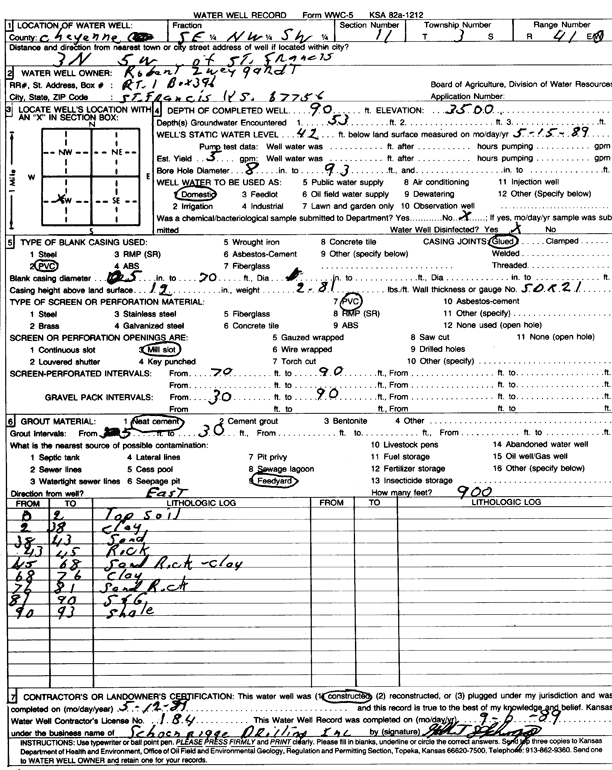 WATER WELL RECORD Form WWC-5 KSA 82a-1212
1 LOCATION OF WATER WELL: Fraction Section Number Township Number Range Number
County: Cheyenne SE ¼ NW ¼ SW ¼ 11 T 3 S R 41 E/W
Distance and direction from nearest town or city street address of well if located within city?
3N 5W of ST. Francis
2 WATER WELL OWNER: Robert Zweygardt
RR#, St. Address, Box # : RT. 1 Box 396 Board of Agriculture, Division of Water Resources
City, State, ZIP Code : ST. Francis KS. 67756 Application Number:
3 LOCATE WELL'S LOCATION WITH AN "X" IN SECTION BOX:
N
NW NE
W E
SW SE
S
1 Mile
4 DEPTH OF COMPLETED WELL 90 ft. ELEVATION: 3500
Depth(s) Groundwater Encountered 1. 53 ft. 2. ft. 3.
WELL'S STATIC WATER LEVEL 42 ft. below land surface measured on mo/day/yr 5-15-89
Pump test data: Well water was ft. after hours pumping gpm
Est. Yield 5 gpm: Well water was ft. after hours pumping gpm
Bore Hole Diameter 8 in. to 93 ft., and in. to
WELL WATER TO BE USED AS: 5 Public water supply 8 Air conditioning 11 Injection well
1 Domestic 3 Feedlot 6 Oil field water supply 9 Dewatering 12 Other (Specify below)
2 Irrigation 4 Industrial 7 Lawn and garden only 10 Observation well
Was a chemical/bacteriological sample submitted to Department? Yes No X ; If yes, mo/day/yr sample was sub
mitted Water Well Disinfected? Yes X No
5 TYPE OF BLANK CASING USED: 5 Wrought iron 8 Concrete tile CASING JOINTS: Glued Clamped
1 Steel 3 RMP (SR) 6 Asbestos-Cement 9 Other (specify below) Welded
2 PVC 4 ABS 7 Fiberglass Threaded
Blank casing diameter 5 in. to 70 ft., Dia in. to ft., Dia in. to ft.
Casing height above land surface 12 in., weight 2.81 lbs./ft. Wall thickness or gauge No. SDR21
TYPE OF SCREEN OR PERFORATION MATERIAL: 7 PVC 10 Asbestos-cement
1 Steel 3 Stainless steel 5 Fiberglass 8 RMP (SR) 11 Other (specify)
2 Brass 4 Galvanized steel 6 Concrete tile 9 ABS 12 None used (open hole)
SCREEN OR PERFORATION OPENINGS ARE: 5 Gauzed wrapped 8 Saw cut 11 None (open hole)
1 Continuous slot 3 Mill slot 6 Wire wrapped 9 Drilled holes
2 Louvered shutter 4 Key punched 7 Torch cut 10 Other (specify)
SCREEN-PERFORATED INTERVALS: From 70 ft. to 90 ft., From ft. to ft.
From ft. to ft., From ft. to ft.
GRAVEL PACK INTERVALS: From 30 ft. to 90 ft., From ft. to ft.
From ft. to ft., From ft. to ft.
6 GROUT MATERIAL: 1 Neat cement 2 Cement grout 3 Bentonite 4 Other
Grout Intervals: From 5 ft. to 30 ft., From ft. to ft., From ft. to ft.
What is the nearest source of possible contamination: 10 Livestock pens 14 Abandoned water well
1 Septic tank 4 Lateral lines 7 Pit privy 11 Fuel storage 15 Oil well/Gas well
2 Sewer lines 5 Cess pool 8 Sewage lagoon 12 Fertilizer storage 16 Other (specify below)
3 Watertight sewer lines 6 Seepage pit 9 Feedyard 13 Insecticide storage
Direction from well? East How many feet? 900
FROM TO LITHOLOGIC LOG FROM TO LITHOLOGIC LOG
0 2 Top Soil
2 38 Clay
38 43 Sand
43 45 Rock
45 68 Sand Rock - Clay
68 76 Clay
76 81 Sand Rock
81 90 S&G
90 93 Shale
7 CONTRACTOR'S OR LANDOWNER'S CERTIFICATION: This water well was (1) constructed, (2) reconstructed, or (3) plugged under my jurisdiction and was
completed on (mo/day/year) 5-12-89 and this record is true to the best of my knowledge and belief. Kansas
Water Well Contractor's License No. 184 This Water Well Record was completed on (mo/day/yr)
under the business name of Schoenrogge Drilling Inc by (signature)
INSTRUCTIONS: Use typewriter or ball point pen. PLEASE PRESS FIRMLY and PRINT clearly. Please fill in blanks, underline or circle the correct answers. Send top three copies to Kansas
Department of Health and Environment, Office of Oil Field and Environmental Geology, Regulation and Permitting Section, Topeka, Kansas 66620-7500, Telephone: 913-862-9360. Send one
to WATER WELL OWNER and retain one for your records.